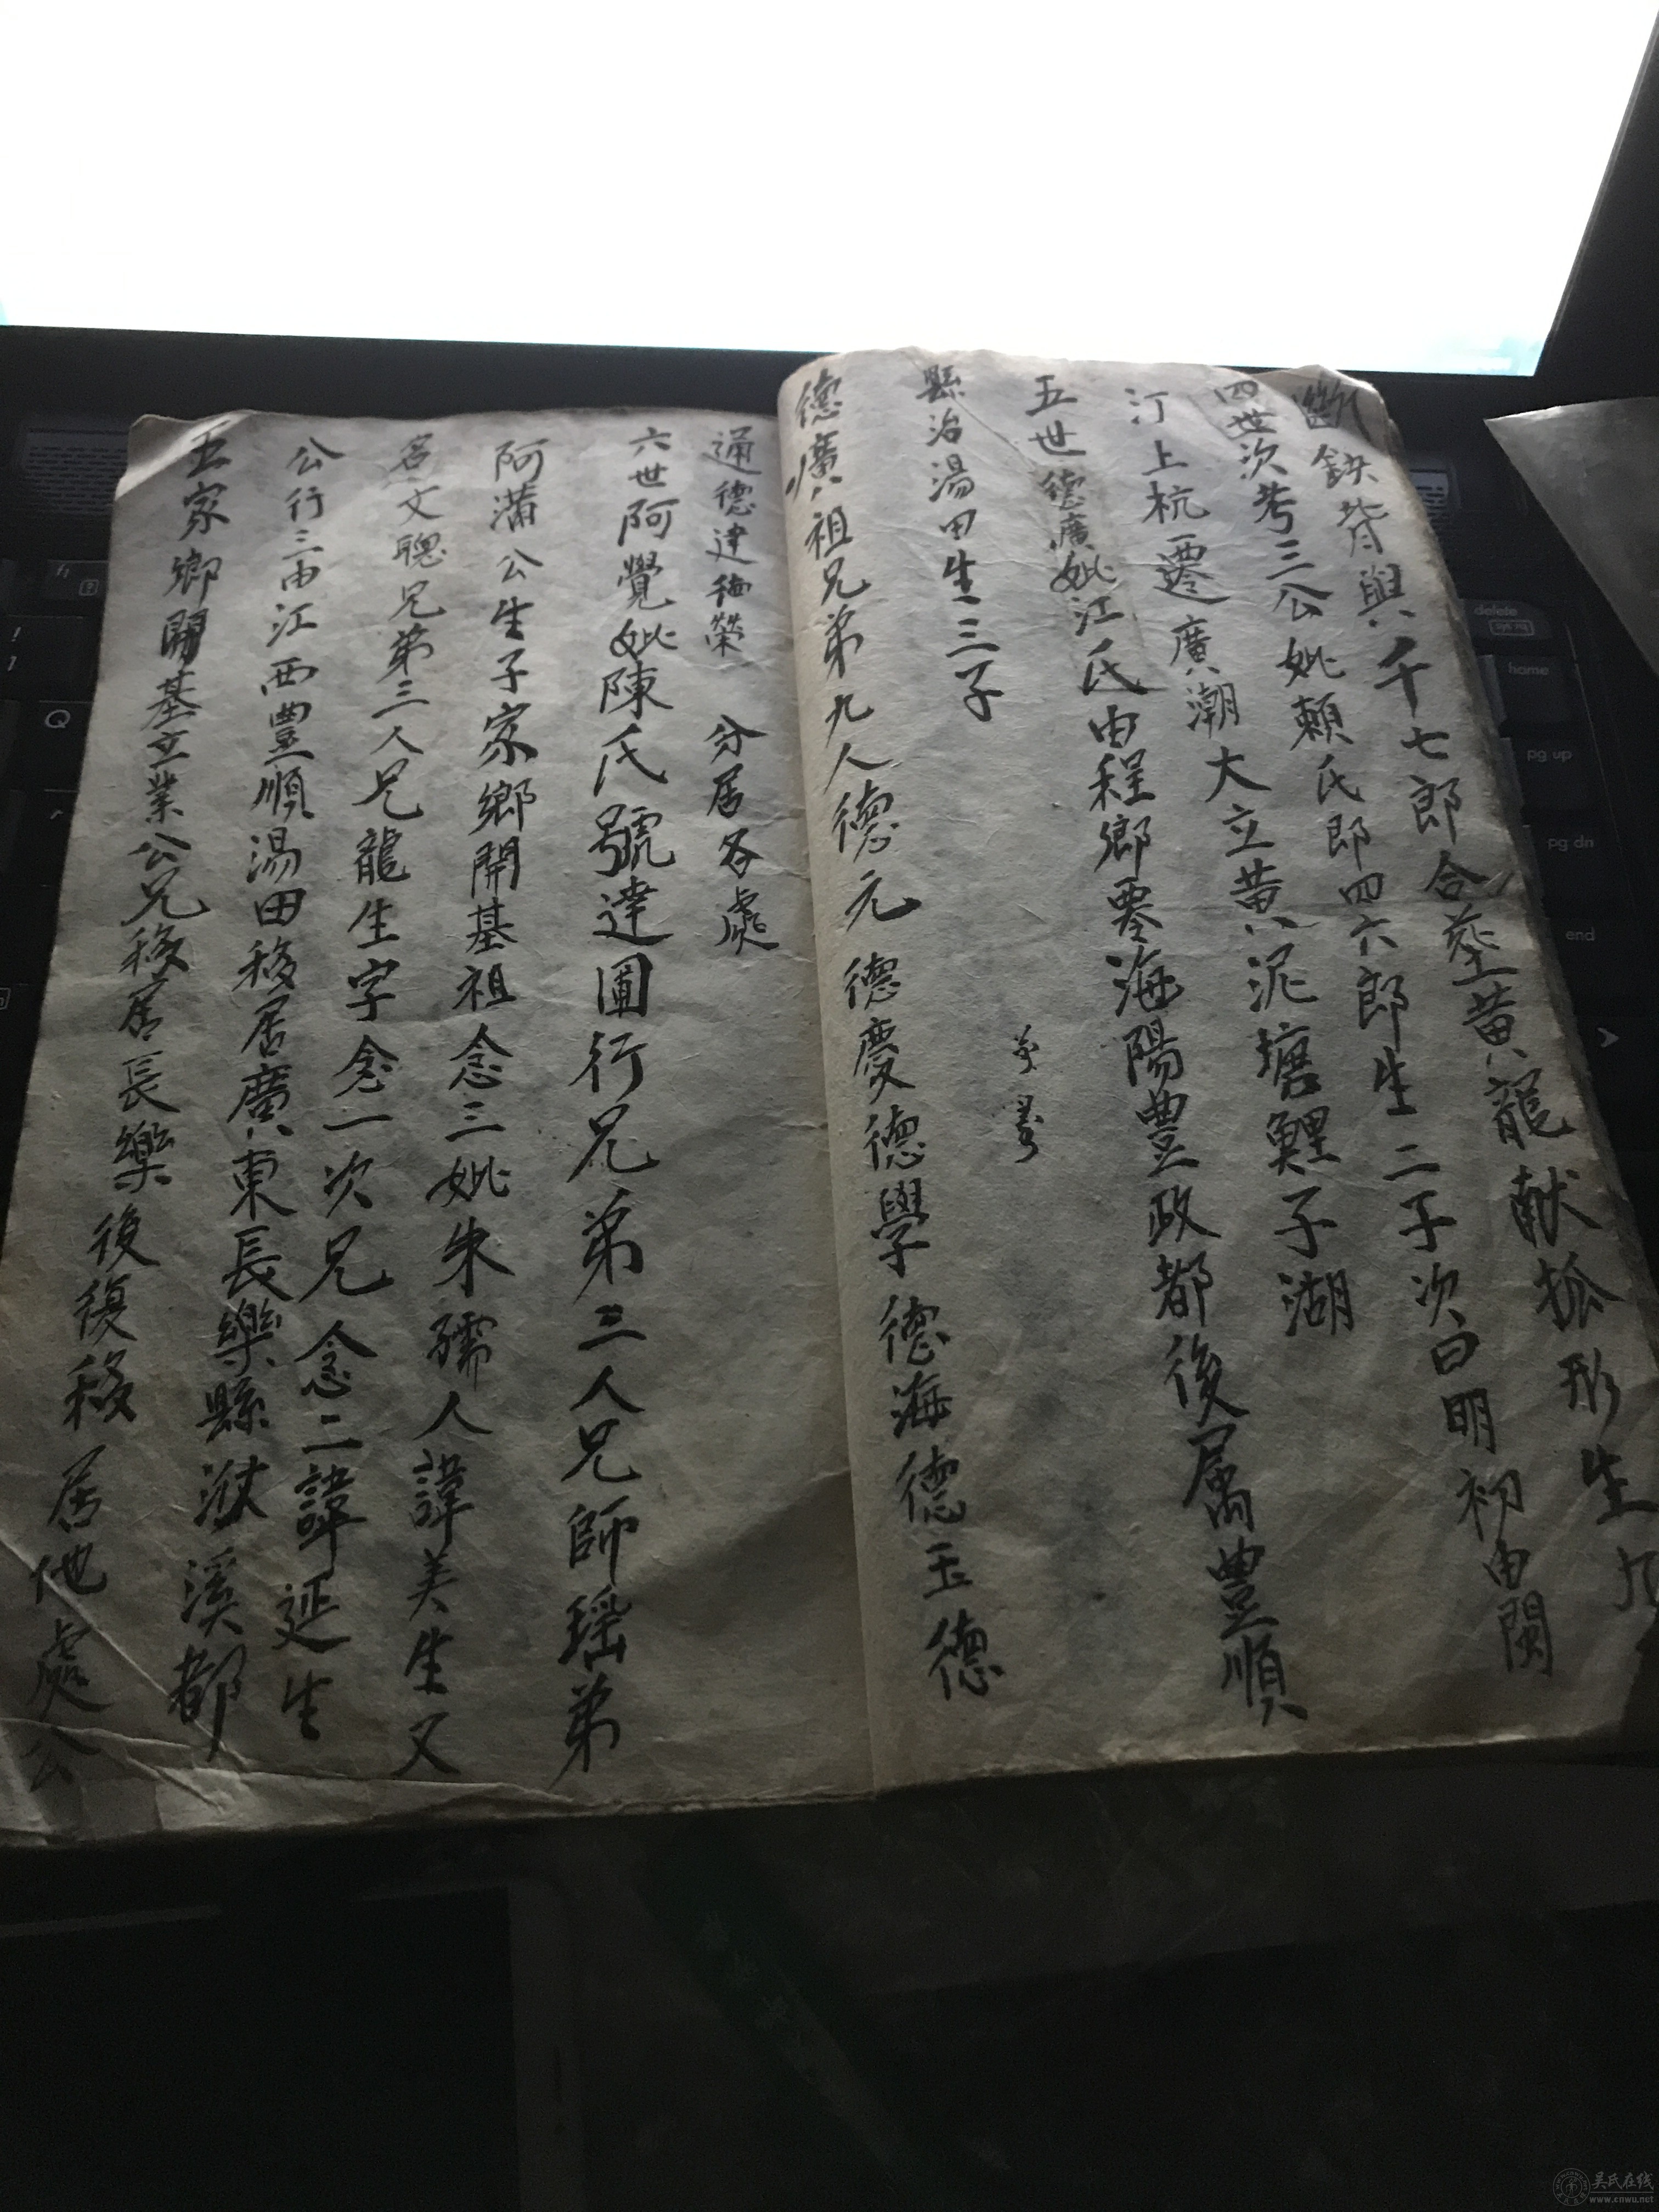 鈌背與千七郎合塟黄龍献狐形生九
四世次考三公妣賴氏郎四六郎生二子次曰明初由閩
汀上杭遷廣潮大立黄泥塘鯉子湖
五世德廣妣江氏由程鄉遷海陽豊政都後属豊順
縣治湯田生三子
德廣祖兄弟九人德元德慶德學德海德玉德
通德達德榮 分居各處
六世阿覺妣陳氏號達圃行兄弟三人兄師瑶弟
阿蒲公生子家鄉開基祖念三妣朱孺人諱美生又
名文聰兄弟三人兄龍生字念一次兄念二諱延生
公行三由江西豊順湯田移居廣東長樂縣溪都
五家鄉開基立業公兄移居長樂後復移居他處公
delete
sys rq
home
pg up
pg dn
end
Q
!
1
f1
吴氏在线
www.cnwu.net